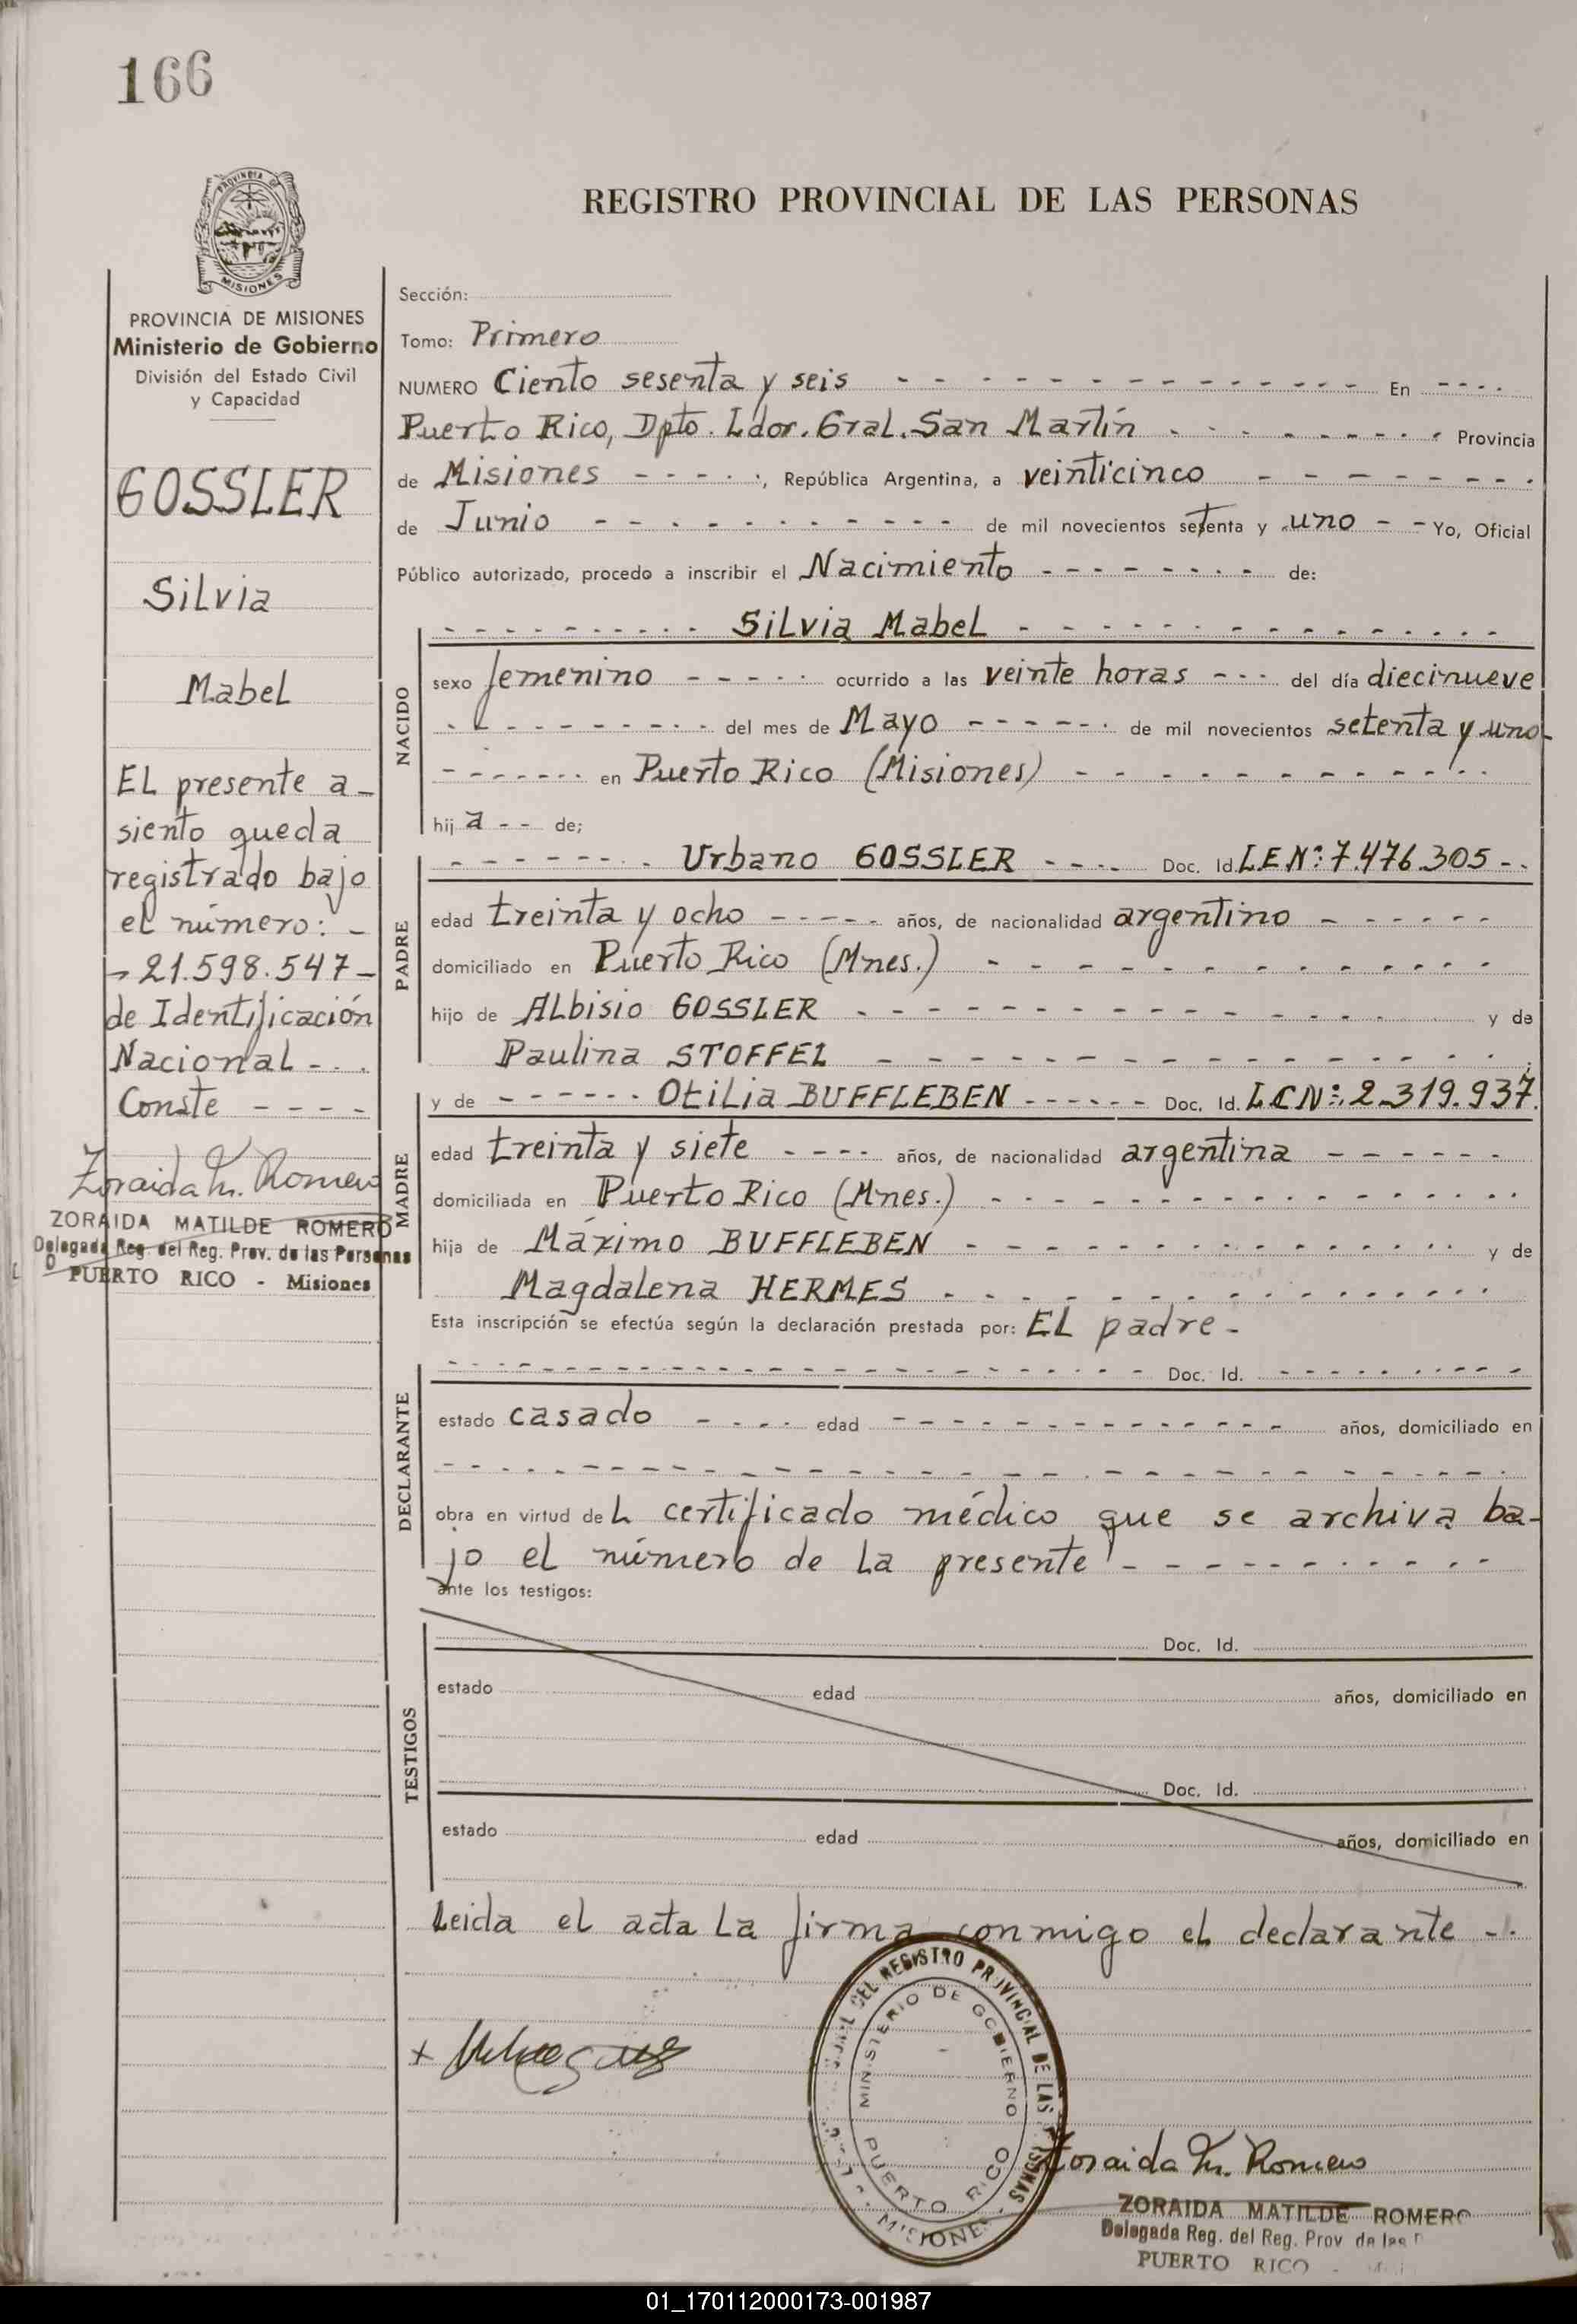 166
REGISTRO PROVINCIAL DE LAS PERSONAS
MISIONES
PROVINCIA DE MISIONES
Ministerio de Gobierno
División del Estado Civil
y Capacidad
GOSSLER
Silvia
Mabel
EL presente a-
siento queda
registrado bajo
el número: -
- 21.598.547 -
de Identificación
Nacional - . .
Conste - - - -
Zoraida M. Romero
ZORAIDA MATILDE ROMERO
Delegada Reg. del Reg. Prov. de las Personas
PUERTO RICO - Misiones
Sección:
Tomo: Primero
NUMERO Ciento sesenta y seis - - - En - - - -
Puerto Rico, Dpto. Ldor. Gral. San Martín - - - Provincia
de Misiones - - - - , República Argentina, a veinticinco - - -
de Junio - - - de mil novecientos setenta y uno - - Yo, Oficial
Público autorizado, procedo a inscribir el Nacimiento - - - de:
NACIDO
- - - Silvia Mabel - - -
sexo femenino - - - ocurrido a las veinte horas - - - del día diecinueve
- - - del mes de Mayo - - - de mil novecientos setenta y uno -
- - - en Puerto Rico (Misiones) - - -
hij a - - de;
PADRE
- - - Urbano GOSSLER - - - Doc. Id. L.E.Nº: 7.476.305 - -
edad treinta y ocho - - - años, de nacionalidad argentino - - -
domiciliado en Puerto Rico (Mnes.) - - -
hijo de ALbisio GOSSLER - - - y de
Paulina STOFFEL - - -
MADRE
y de - - - OtiLia BUFFLEBEN - - - Doc. Id. L.C.Nº: 2.319.937.
edad treinta y siete - - - - años, de nacionalidad argentina - - -
domiciliada en Puerto Rico (Mnes.) - - -
hija de Máximo BUFFLEBEN - - - y de
Magdalena HERMES - - -
Esta inscripción se efectúa según la declaración prestada por: EL padre -
DECLARANTE
- - - Doc. Id. - - -
estado casado - - - - edad - - - años, domiciliado en
- - -
obra en virtud de L certificado médico que se archiva ba-
jo el número de la presente - - -
ante los testigos:
TESTIGOS
Doc. Id.
estado edad años, domiciliado en
Doc. Id.
estado edad años, domiciliado en
Leida el acta La firma conmigo el declarante - .
DEL REGISTRO PROVINCIAL DE LAS PERSONAS
MINISTERIO DE GOBIERNO
PUERTO RICO
MISIONES
Zoraida M. Romero
ZORAIDA MATILDE ROMERO
Delegada Reg. del Reg. Prov de las
PUERTO RICO -
01_170112000173-001987